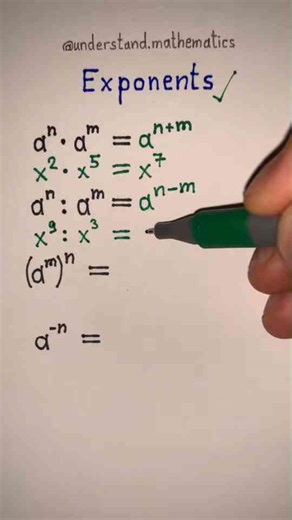 @understand.mathematics
Exponents ✓
aⁿ · aᵐ = aⁿ⁺ᵐ
x² · x⁵ = x⁷
aⁿ : aᵐ = aⁿ⁻ᵐ
x⁹ : x³ =
(aᵐ)ⁿ =
a⁻ⁿ =